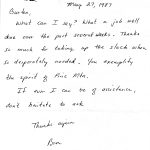 May 27, 1987
What can I say? What a job well
done over the past several weeks. Thanks
so much for taking up the slack when
so desperately needed. You exemplify
the spirit of
If ever I can be of assistance,
don't hesitate to ask
Thanks again
Ron